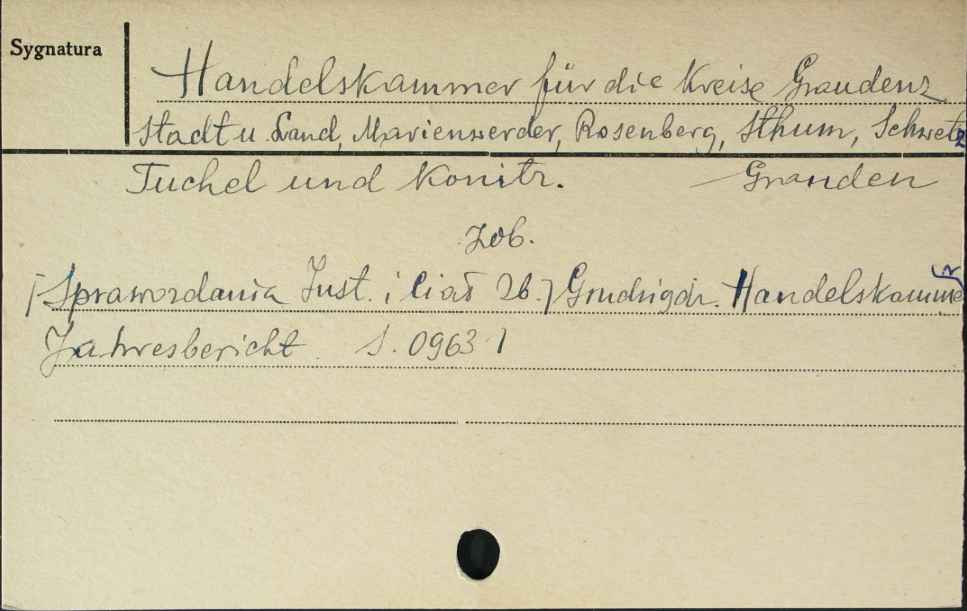 Sygnatura
Handelskammer für die Kreise Graudenz
Stadt u. Land, Marienwerder, Rosenberg, Sthum, Schwetz
Tuchel und Konitz. — Grauden
Zob.
[Sprawozdania Inst. i Ciał Zb.] Grudziądz. Handelskammer
Jahresbericht S. 0963 1